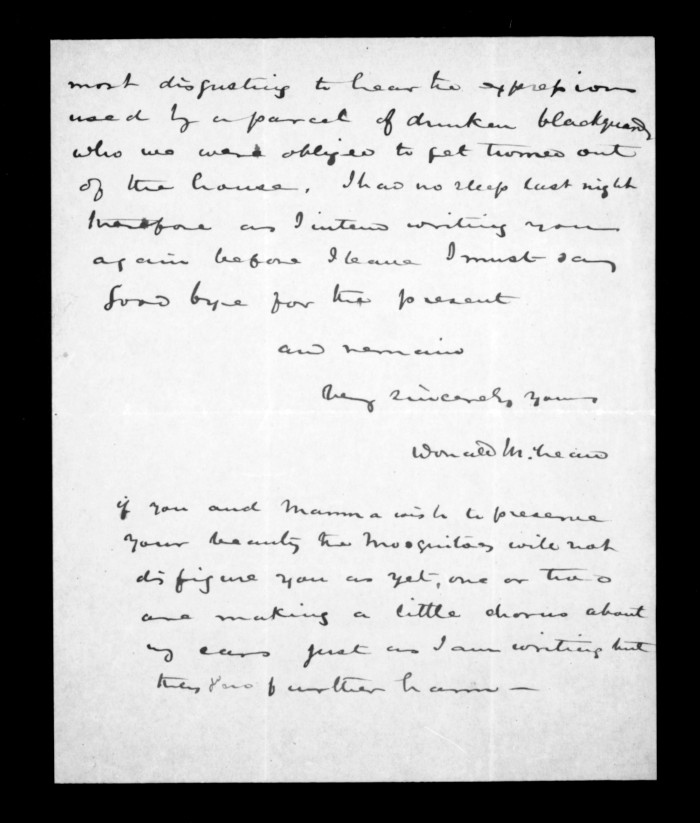 most disgusting to hear the expressions
used by a parcel of drunken blackguards
who we were obliged to get turned out
of the house. I had no sleep last night
therefore as I intend writing you
again before I leave I must say
Good bye for the present
and remain
Very sincerely yours
Donald McLean
if you and Mamma wish to preserve
your beauty the Mosquitoes will not
disfigure you as yet, one or two
are making a little chorus about
my ears just as I am writing but
they do no further harm —